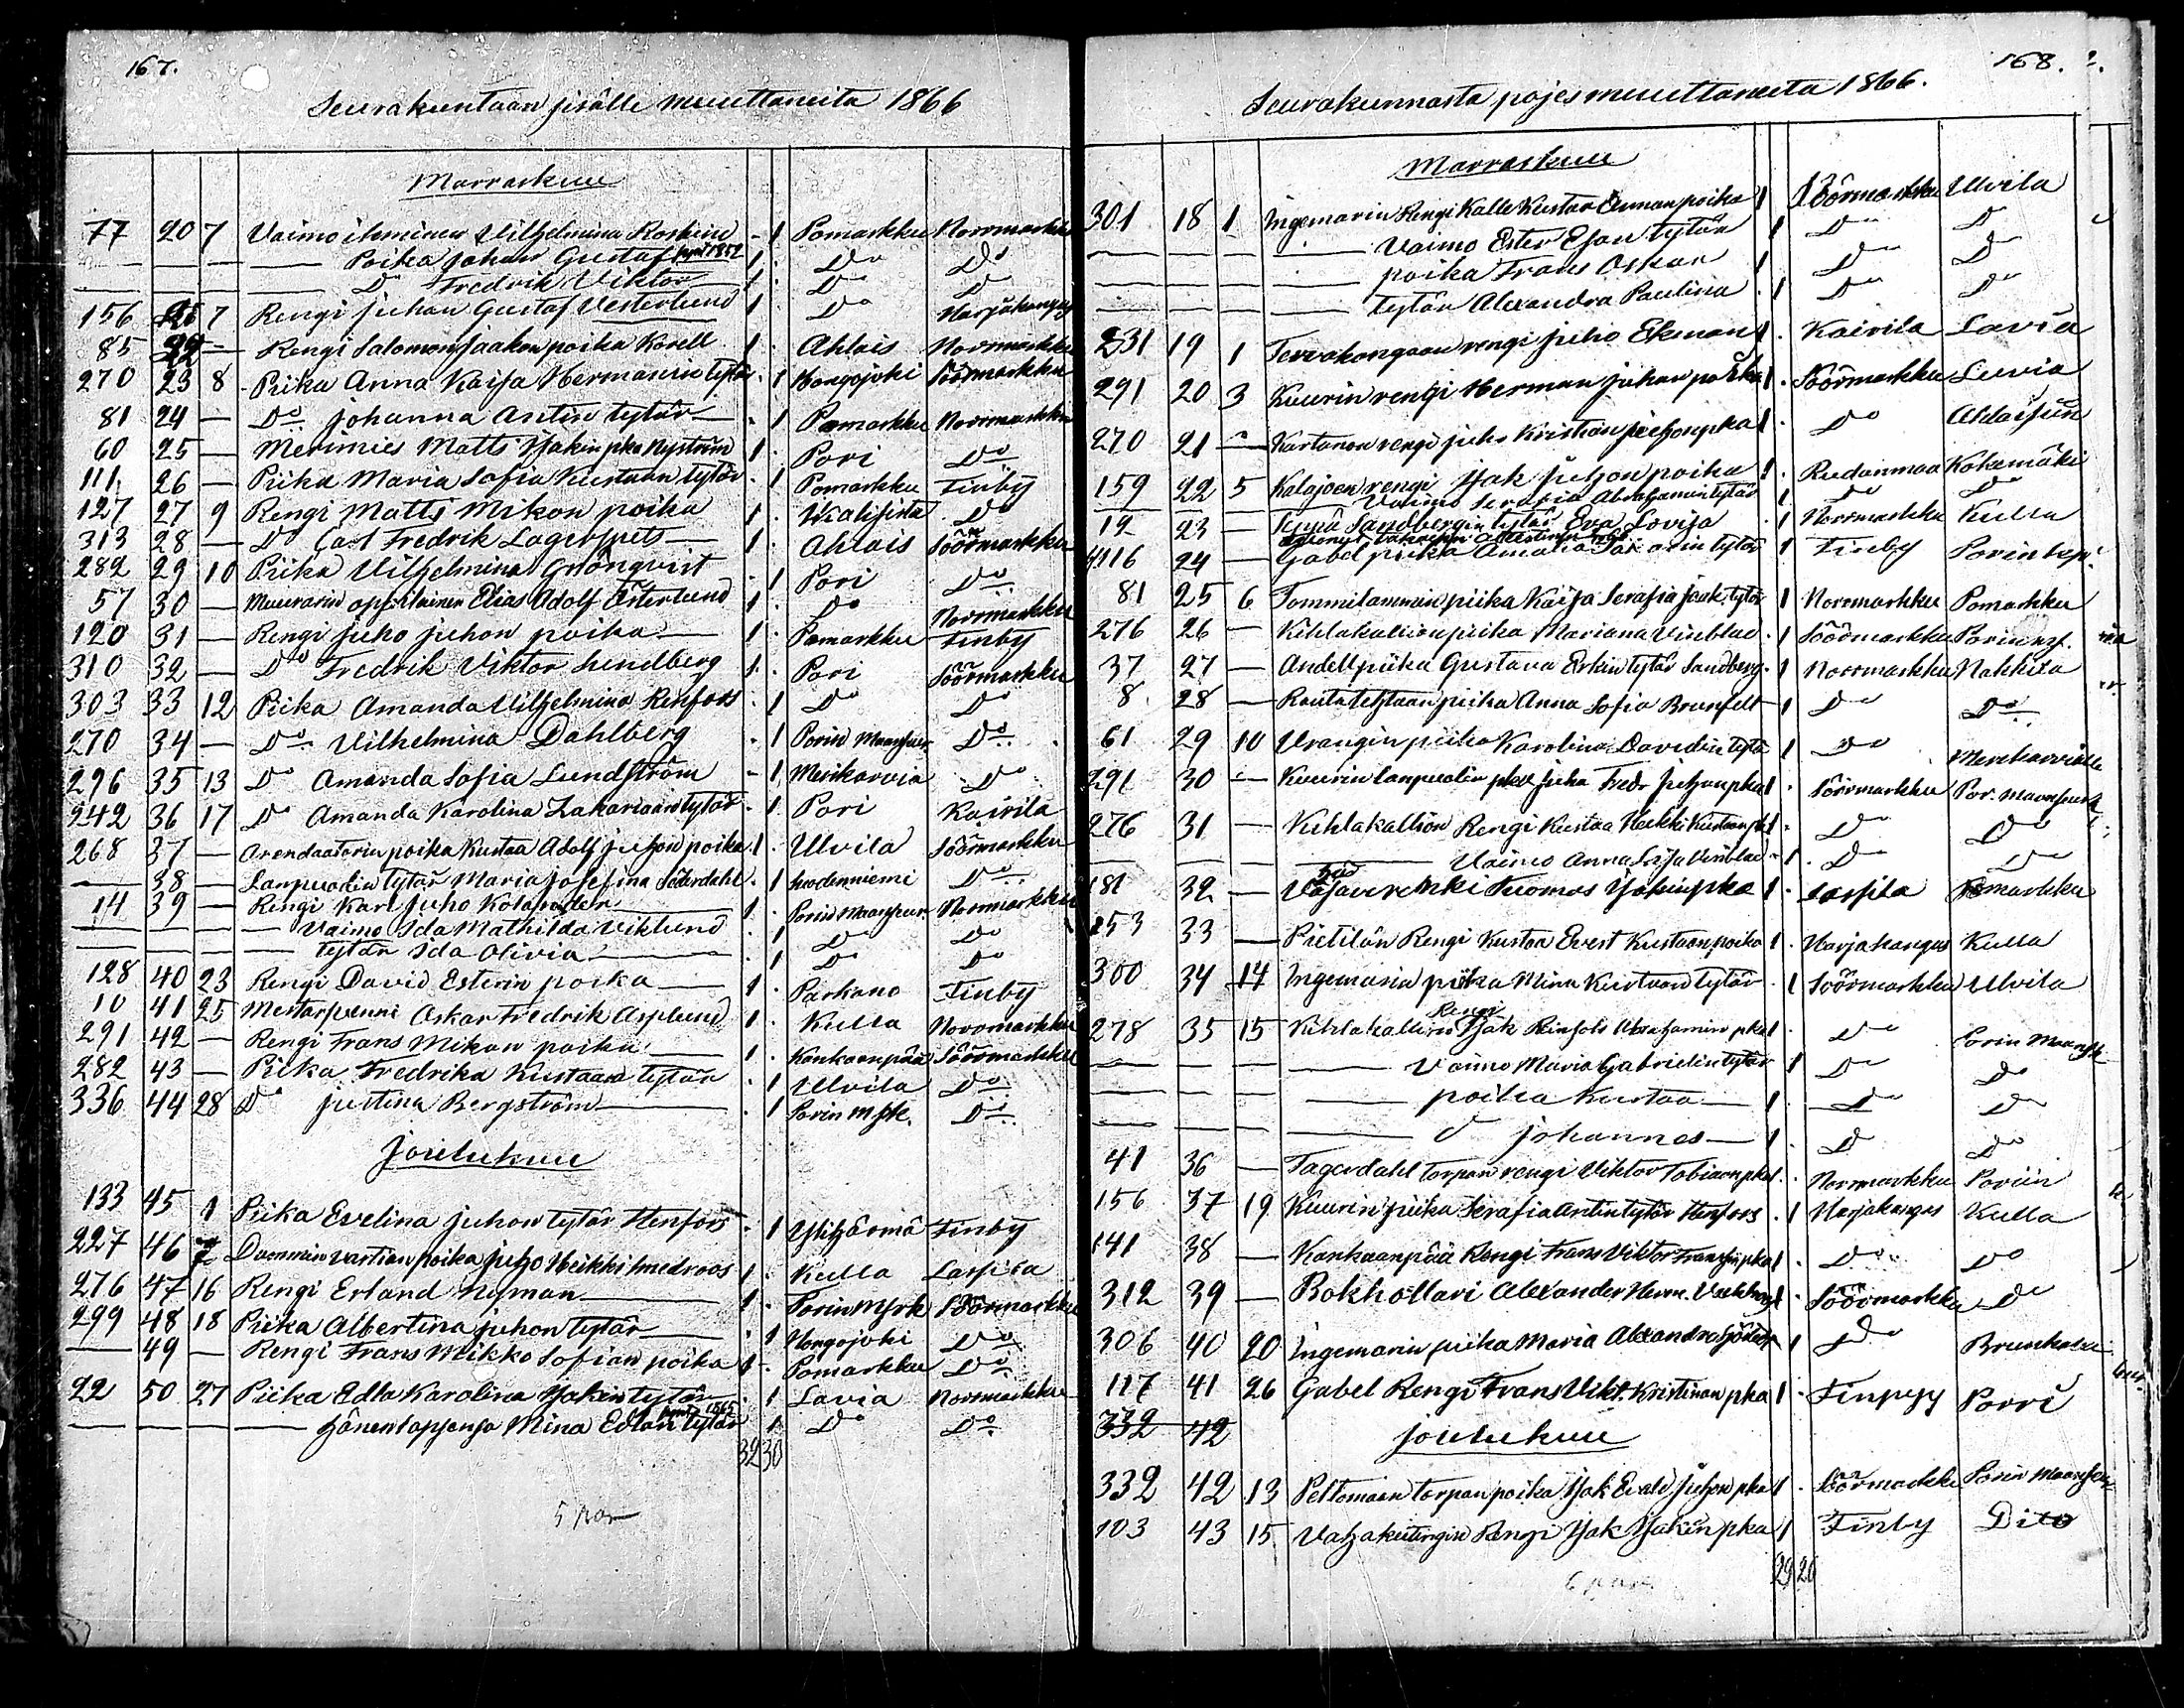 167.
Seurakuntaan sisälle muuttaneita 1866
Marraskuu
77 20 7 Vaimo itsminen Vilhelmina Roskine - 1 Pomarkku Norrmarkku
— — — — Poika Johan Gustaf 1852 1 Do Do
— — — Do Fredrik Viktor 1 Do Do
156 21 7 Rengi Juhan Gustaf Vesterlund 1 Do Harjakangas
85 22 — Rengi Salomon Jaakon poika Korell 1 Ahlais Norrmarkku
270 23 8 Piika Anna Kaisa Hermannin tytär . 1 Hongojoki Söörmarkku
81 24 — Do Johanna Antin tytär — . 1 Pomarkku Norrmarkku
60 25 — Merimies Matts Isakin pka Nyström 1 . Pori Do
111 26 — Piika Maria Sofia Kustaan tytär . 1 Pomarkku Finby
127 27 9 Rengi Matts Mikon poika 1 . Do
313 28 — Do Carl Fredrik Lagerspets — 1 . Ahlais Söörmarkku
282 29 10 Piika Vilhelmina Grönqvist . 1 Pori Do
57 30 — Muurarin oppilainen Elias Adolf Österlund 1 . Do Norrmarkku
120 31 — Rengi Juho Juhon poika — 1 . Pomarkku Finby
310 32 — Do Fredrik Viktor Lindberg 1 . Pori Söörmarkku
303 33 12 Piika Amanda Vilhelmina Renfors . 1 Do Do
270 34 — Do Vilhelmina Dahlberg . 1 Porin Maaseur. Do
296 35 13 Do Amanda Sofia Lundström - 1 Merikarvia Do
242 36 17 Do Amanda Karolina Zakariaan tytär . 1 Pori Kairila
268 37 — Arendaatorin poika Kustaa Adolf Juhon poika 1 . Ulvila Söörmarkku
— 38 — Lanpuodin tytär Maria Josefina Söderdahl . 1 Luodenniemi Do
14 39 — Rengi Karl Juho Kolander 1 . Porin Maaseur. Norrmarkku
— — — — Vaimo Ida Mathilda Viklund . 1 Do Do
— — — — tytär Ida Olivia — . 1 Do Do
128 40 23 Rengi David Esterin poika — 1 . Parkano Finby
10 41 25 Mestarpenni Oskar Fredrik Asplund 1 . Kulla Norrmarkku
291 42 — Rengi Frans Mikon poika — 1 . Kankaanpää Söörmarkku
282 43 — Piika Fredrika Kustaan tytär . 1 Ulvila Do
336 44 28 Do Justina Bergström — . 1 Porin msk. Do
Joulukuu
133 45 1 Piika Evelina Juhon tytär Henfors . 1 Ylihärmä Finby
227 46 7 vartian poika Juho Heikki 1 . Kulla Lassila
276 47 16 Rengi Erland Nyman — 1 . Porin Msrk Söörmarkku
299 48 18 Piika Albertina Juhon tytär — . 1 Hongojoki Do
— 49 — Rengi Frans Mikko Sofian poika 1 . Pomarkku Do
22 50 27 Piika Edla Karolina Isakin tytär . 1 Lavia Norrmarkku
— — — — hänen lapsensa Mina Edlan tytär 1865 . 1 Do Do
32 30
5 par
168.
Seurakunnasta pojes muuttaneita 1866.
Marraskuu
301 18 1 Ingemarin Rengi Kalle Kustaa Annan poika 1 Söörmarkku Ulvila
— Vaimo Ester Esan tytär 1 Do Do
— — — — poika Frans Oskar 1 Do Do
— — — — tytär Alexandra Paulina . 1 Do Do
231 19 1 Tervakangaan rengi Juho Ekman 1 . Kairila Lavia
291 20 3 Kuurin rengi Herman Juhan poika 1 . Söörmarkku Luvia
270 21 — Kartanon rengi Juho Kristian Juhonpka 1 . Do Ahlaisiin
159 22 5 Kalajoen rengi Isak Juhon poika 1 . Rudanmaa Kokemäki
Vaimo Serafia Abrahamintytär 1 Do Do
19 23 — Sandbergin tytär Eva Lovisa . 1 Norrmarkku Kulla
116 24 — Gabel piika Amalia tytär 1 Finby
81 25 6 Tommilanmäin piika Kaisa Serafia Jaak. tytär 1 Norrmarkku Pomarkku
276 26 — Kihlakallion piika Mariana Vinblad . 1 Söörmarkku
37 27 — Andell piika Gustava Erkin tytär Sandberg . 1 Norrmarkku Nakkila
8 28 — Rautatehtaan piika Anna Sofia Brunfelt — 1 Do Do
61 29 10 Vrangin piika Karolina Davidin tytär 1 Do Merikarvialle
291 30 — Kuurin lanpuodin pka Juha Fredr Juhan pka 1 . Söörmarkku Por. Maaseurk
276 31 — Kihlakallion Rengi Kustaa Heikki Kustaan pka 1 . Do Do
— — Vaimo Anna Vinblad - 1 . Do Do
181 32 — renki Tuomas Isakinpka 1 . Lassila Pomarkku
153 33 — Pietilän Rengi Kustaa Evert Kustaan poika 1 . Harjakangas Kulla
300 34 14 Ingemarin piika Mina Kustaan tytär . 1 Söörmarkku Ulvila
278 35 15 Kihlakallion Rengi Isak Renfors Abrahamin pka 1 . Do Porin Maasrk
— — — — Vaimo Maria Gabrielin tytär 1 Do Do
— — — — poika Kustaa — 1 . Do Do
— — — — D Johannes — 1 . Do Do
41 36 — Fagerdahl torpan rengi Viktor Tobiaan pka 1 . Norrmarkku Poriin
156 37 19 Kuurin piika Serafia Antin tytär Henfors . 1 Harjakangas Kulla
141 38 — Kankaanpää Rengi Frans Viktor Fransin pka 1 . Do Do
312 39 — Bokhollari Alexander Herm. 1 . Söörmarkku Do
306 40 20 Ingemarin piika Maria Alexandra 1 Do
117 41 26 Gabel Rengi Frans Vikt. Kristinan pka 1 . Finpyy Porri
332 42
Joulukuu
332 42 13 Peltomaan torpan poika Isak Evald Juhon pka 1 . Söörmarkku Porin Maaseur
103 43 15 Rengi Isak Isakin pka 1 Finby Dito
29 20
6 par